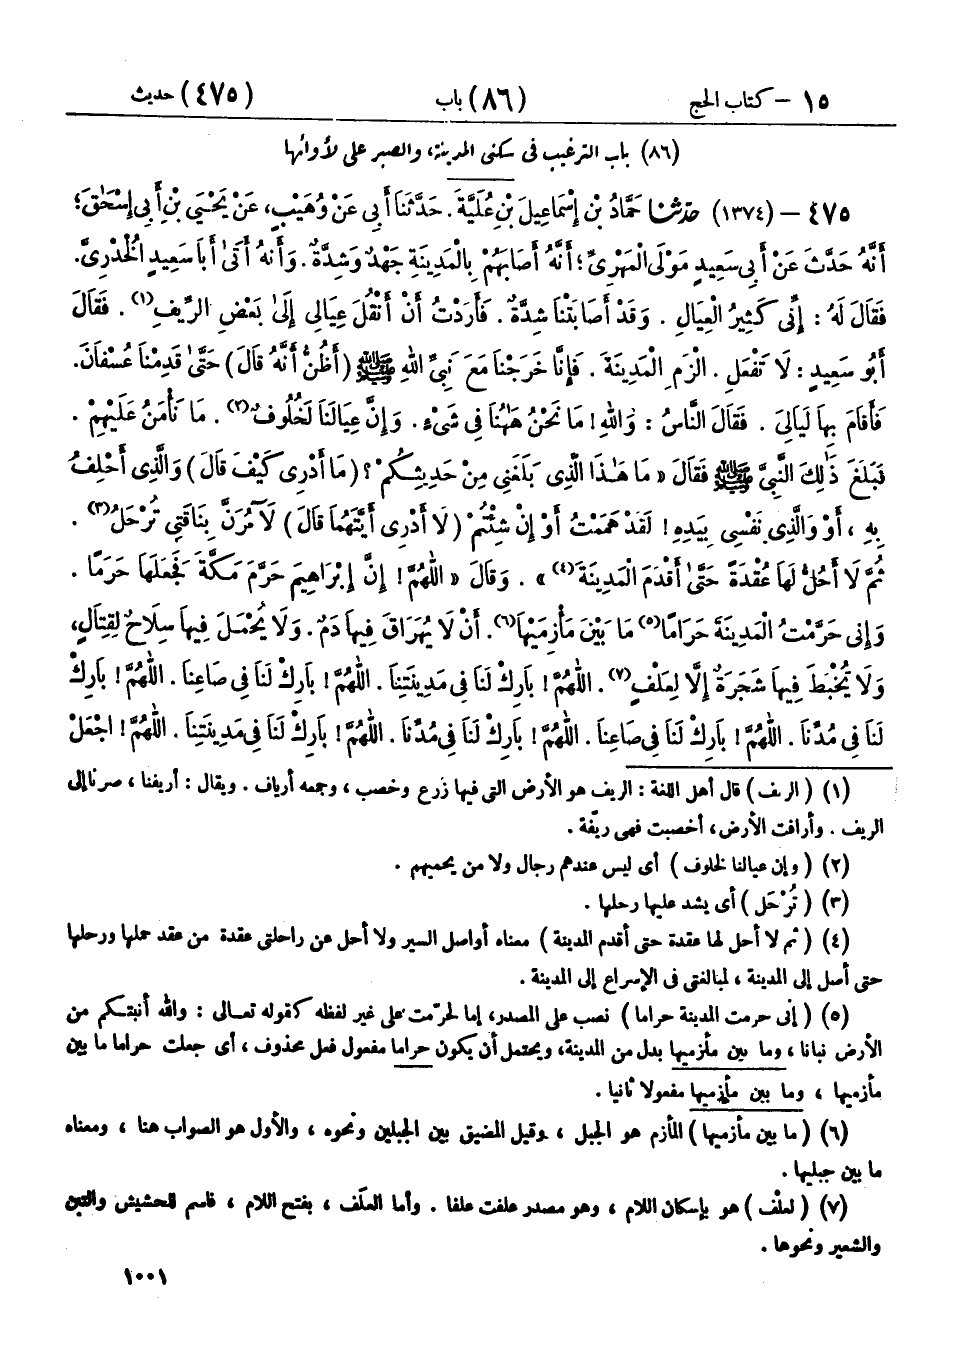 ١٥ – كتاب الحج (٨٦) باب (٤٧٥) حديث
(٨٦) باب الترغيب فى سكنى المدينة، والصبر على لأوائها
٤٧٥ – (١٣٧٤) حَدَّثَنَا حَمَّادُ بْنُ إِسْمَاعِيلَ بْنِ عُلَيَّةَ. حَدَّثَنَا أَبِى عَنْ وُهَيْبٍ، عَنْ يَحْيَىٰ بْنِ أَبِى إِسْحَاقَ؛
أَنَّهُ حَدَّثَ عَنْ أَبِى سَعِيدٍ مَوْلَى الْمَهْرِىِّ؛ أَنَّهُ أَصَابَهُمْ بِالْمَدِينَةِ جَهْدٌ وَشِدَّةٌ. وَأَنَّهُ أَتَىٰ أَبَا سَعِيدٍ الْخُدْرِىَّ.
فَقَالَ لَهُ : إِنِّى كَثِيرُ الْعِيَالِ . وَقَدْ أَصَابَتْنَا شِدَّةٌ . فَأَرَدْتُ أَنْ أَنْقُلَ عِيَالِى إِلَىٰ بَعْضِ الرِّيفِ(١) . فَقَالَ
أَبُو سَعِيدٍ : لَا تَفْعَلِ . الْزَمِ الْمَدِينَةَ . فَإِنَّا خَرَجْنَا مَعَ نَبِىِّ اللهِ ﷺ (أَظُنُّ أَنَّهُ قَالَ) حَتَّىٰ قَدِمْنَا عُسْفَانَ.
فَأَقَامَ بِهَا لَيَالِىَ . فَقَالَ النَّاسُ : وَاللهِ! مَا نَحْنُ هَاهُنَا فِى شَىْءٍ . وَإِنَّ عِيَالَنَا لَخُلُوفٌ(٢) . مَا نَأْمَنُ عَلَيْهِمْ .
فَبَلَغَ ذَٰلِكَ النَّبِىَّ ﷺ فَقَالَ « مَا هَٰذَا الَّذِى بَلَغَنِى مِنْ حَدِيثِكُمْ ؟ (مَا أَدْرِى كَيْفَ قَالَ) وَالَّذِى أَحْلِفُ
بِهِ ، أَوْ وَالَّذِى نَفْسِى بِيَدِهِ ! لَقَدْ هَمَمْتُ أَوْ إِنْ شِئْتُمْ (لَا أَدْرِى أَيَّتَهُمَا قَالَ) لَآمُرَنَّ بِنَاقَتِى تُرْحَلُ(٣) .
ثُمَّ لَا أَحُلُّ لَهَا عُقْدَةً حَتَّىٰ أَقْدَمَ الْمَدِينَةَ(٤) » . وَقَالَ « اللّٰهُمَّ ! إِنَّ إِبْرَاهِيمَ حَرَّمَ مَكَّةَ فَجَعَلَهَا حَرَمًا .
وَإِنِّى حَرَّمْتُ الْمَدِينَةَ حَرَامًا(٥) مَا بَيْنَ مَأْزِمَيْهَا(٦). أَنْ لَا يُهَرَاقَ فِيهَا دَمٌ. وَلَا يُحْمَلَ فِيهَا سِلَاحٌ لِقِتَالٍ،
وَلَا يُخْبَطَ فِيهَا شَجَرَةٌ إِلَّا لِعَلْفٍ(٧) . اللّٰهُمَّ ! بَارِكْ لَنَا فِى مَدِينَتِنَا . اللّٰهُمَّ ! بَارِكْ لَنَا فِى صَاعِنَا . اللّٰهُمَّ ! بَارِكْ
لَنَا فِى مُدِّنَا . اللّٰهُمَّ ! بَارِكْ لَنَا فِى صَاعِنَا . اللّٰهُمَّ ! بَارِكْ لَنَا فِى مُدِّنَا . اللّٰهُمَّ ! بَارِكْ لَنَا فِى مَدِينَتِنَا . اللّٰهُمَّ ! اجْعَلْ
(١) ( الريف ) قال أهل اللغة : الريف هو الأرض التى فيها زرع وخصب ، وجمعه أرياف . ويقال : أريفنا ، صرنا إلى
الريف . وأرافت الأرض ، أخصبت فهى ريّفة .
(٢) ( وإن عيالنا لخلوف ) أى ليس عندهم رجال ولا من يحميهم .
(٣) ( تُرْحَل ) أى يشد عليها رحلها .
(٤) ( ثم لا أحل لها عقدة حتى أقدم المدينة ) معناه أواصل السير ولا أحل عن راحلتى عقدة من عقد حملها ورحلها
حتى أصل إلى المدينة ، لمبالغتى فى الإسراع إلى المدينة .
(٥) ( إنى حرمت المدينة حراما ) نصب على المصدر، إما لحرّمت على غير لفظه كقوله تعالى : والله أنبتكم من
الأرض نباتا ، وما بين مأزميها بدل من المدينة، ويحتمل أن يكون حراما مفعول فعل محذوف ، أى جعلت حراما ما بين
مأزميها ، وما بين مأزميها مفعولا ثانيا .
(٦) ( ما بين مأزميها ) المأزم هو الجبل ، وقيل المضيق بين الجبلين ونحوه ، والأول هو الصواب هنا ، ومعناه
ما بين جبليها .
(٧) ( لعلْف ) هو بإسكان اللام ، وهو مصدر علفت علفا . وأما العلَف ، بفتح اللام ، فاسم للحشيش والتبن
والشعير ونحوها .
١٠٠١